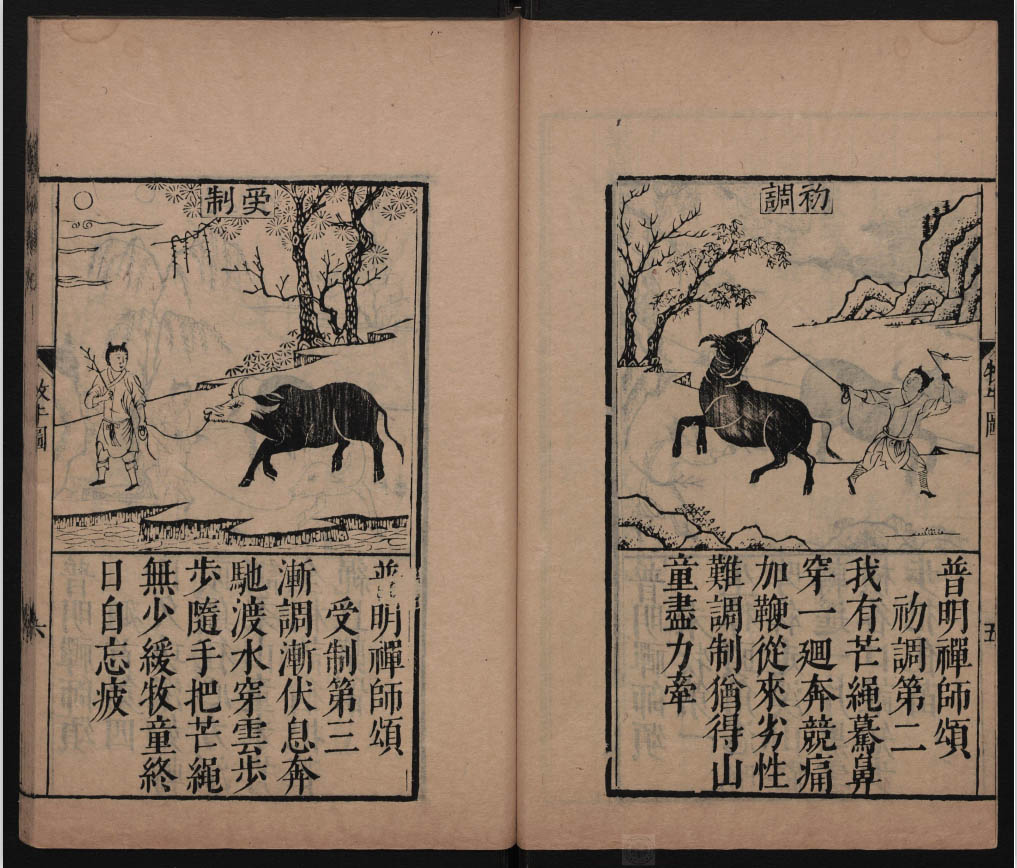 初調
普明禪師頌
初調第二
我有芒繩驀鼻
穿一廻奔競痛
加鞭從來劣性
難調制猶得山
童盡力牽
牧牛圖
五
受制
普明禪師頌
受制第三
漸調漸伏息奔
馳渡水穿雲步
步隨手把芒繩
無少緩牧童終
日自忘疲
牧牛圖
六